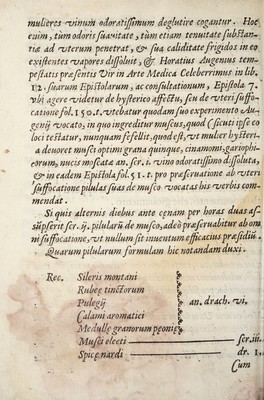 mulieres vinum odoratissimum deglutire cogantur. Hoc
enim, tùm odoris suauitate, tùm etiam tenuitate substan-
tiæ ad vterum penetrat, & sua caliditate frigidos in eo
existentes vapores dissoluit, & Horatius Augenius tem-
pestatis præsentis Vir in Arte Medica Celeberrimus in lib.
12. suarum Epistolarum, ac consultationum, Epistola 7.
vbi agere videtur de hysterico affectu, seu de vteri suffo-
catione fol. 150. t. vtebatur quodam suo experimento Au-
genij vocato, in quo ingreditur muscus, quod (sicuti ipse eo
loci testatur, nunquam fefellit, quod est, vt mulier hysteri-
ca deuoret musci optimi grana quinque, cinamomi, gariophi-
lorum, nucis moscatæ an. scr. i. vino odoratissimo dissoluta,
& in eadem Epistola fol. 51. t. pro præseruatione ab vteri
suffocatione pilulas suas de musco vocatas his verbis com-
mendat.
Si quis alternis diebus ante cęnam per horas duas as-
sūpserit scr. ij. pilularū de musco, adeò præseruabitur ab om
ni suffocatione, vt nullum sit inuentum efficacius præsidiū.
Quarum pilularum formulam hic notandam duxi.
Rec. Sileris montani
Rubeę tinctorum
Pulegij an. drach. vi.
Calami aromatici
Medullę granorum pęonię
Musci electi scr. iii.
Spicę nardi dr. 1.
Cum